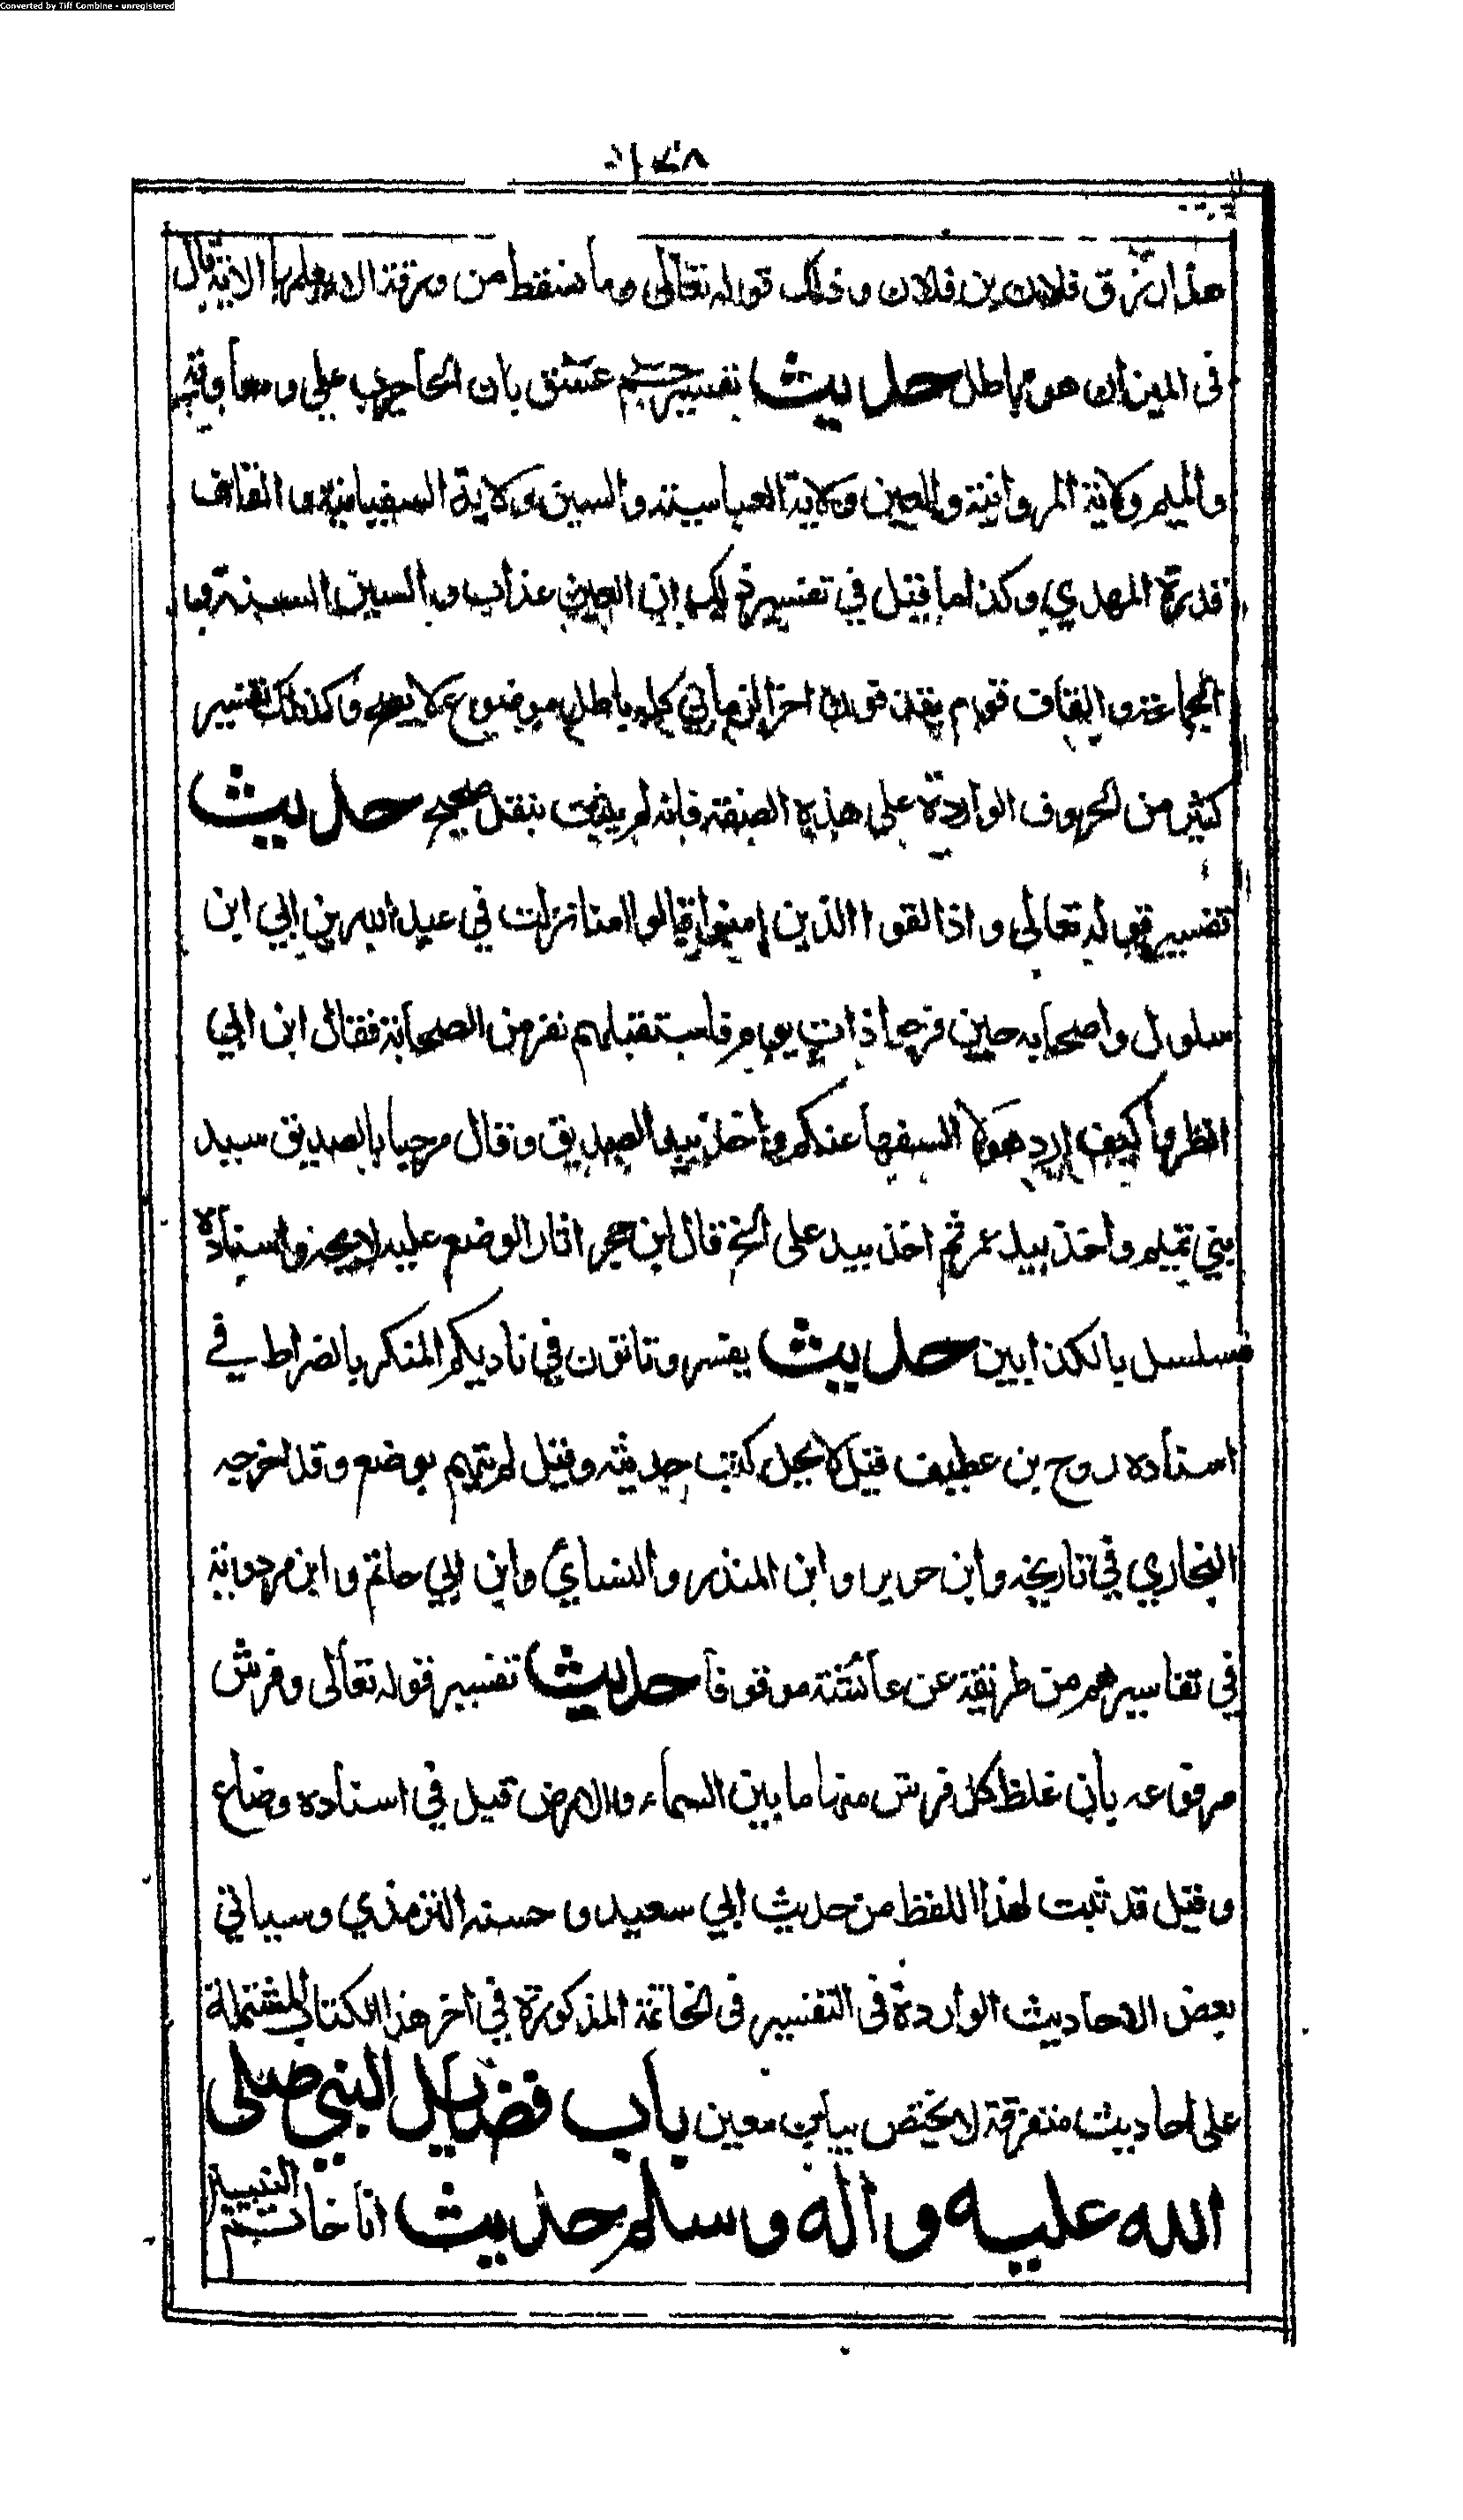 Converted by Tiff Combine - unregistered
هذا رزق فلان بن فلان وذلك قوله تعالى وما تسقط من ورقة الا يعلمها الاية قال
في الميزان هو باطل حديث تفسير حم عسق بان الحا حرب علي ومعاوية
والميم ولاية المروانية والعين ولاية العباسية والسين ولاية السفيانية والقاف
قدرة المهدي وكذا ما قيل في تفسير ذلك ان العين عذاب والسين السنة وا
لجماعة والقاف قوم يقذفون اخر الزمان كله باطل موضوع لا يصح وكذلك تفسير
كثير من الحروف الواردة على هذه الصفة فانه لم يثبت بنقل صحيح حديث
تفسير قوله تعالى واذا لقوا الذين امنوا قالوا امنا نزلت في عبد الله بن ابي ابن
سلول واصحابه حين خرجوا ذات يوم فاستقبلهم نفر من الصحابة فقال ابن ابي
انظروا كيف ارد هولا السفها عنكم واخذ بيد الصديق وقال مرحبا بالصديق سيد
بني تميم واخذ بيد عمر ثم اخذ بيد على الخ قال ابن حجر اثار الوضع عليه لايحة واسناده
مسلسل بالكذابين حديث يفسر وتاتون في ناديكم المنكر بالضراط في
اسناده روح بن عطيف قيل لا يحل كتب حديثه وقيل لم يتهم بوضع وقد اخرجه
البخاري في تاريخه وابن جرير وابن المنذر والنساي وابن ابي حاتم وابن مردوية
في تفاسيرهم من طريقة عن عائشة موقوفا حديث تفسير قوله تعالى وفرش
مرفوعه بان غلظ كل فرش منها ما بين السماء والارض قيل في اسناده وضاع
وقيل قد ثبت هذا اللفظ من حديث ابي سعيد وحسنه الترمذي وسياتي
بعض الاحاديث الواردة في التفسير في الخاتمة المذكورة في اخر هذا الكتاب المشتملة
على احاديث متفرقة لا يختص بباب معين باب فضايل النبي صلى
الله عليه واله وسلم حديث انا خاتم النبيين